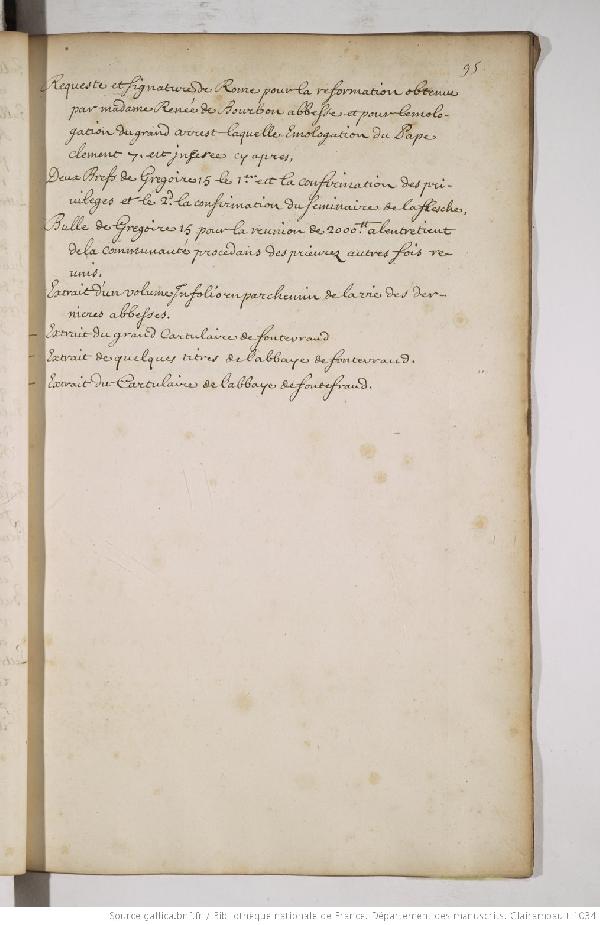 95
Requeste et signature de Rome pour la reformation obtenue
par madame Renée de Bourbon abbesse et pour lemolo-
gation du grand arrest laquelle Emologation du Pape
clement 7. est inserée cy apres,
Deux Brefs de Gregoire 15 le 1.er est la confirmation des pri-
vileges et le 2.d la confirmation du seminaire de la flesche,
Bulle de Gregoire 15 pour la reunion de 2000.tt a lentretient
de la communauté procedans des prieurez autres fois re-
unis.
Extrait d'un volume Infolio en parchemin de la vie des der-
nieres abbesses.
Extrait du grand Cartulaire de fontevraud
Extrait de quelques titres de l'abbaye de fontevraud.
Extrait du Cartulaire de l'abbaye de fontefraud.
Source gallica.bnf.fr / Bibliothèque nationale de France. Département des manuscrits. Clairambault 1034